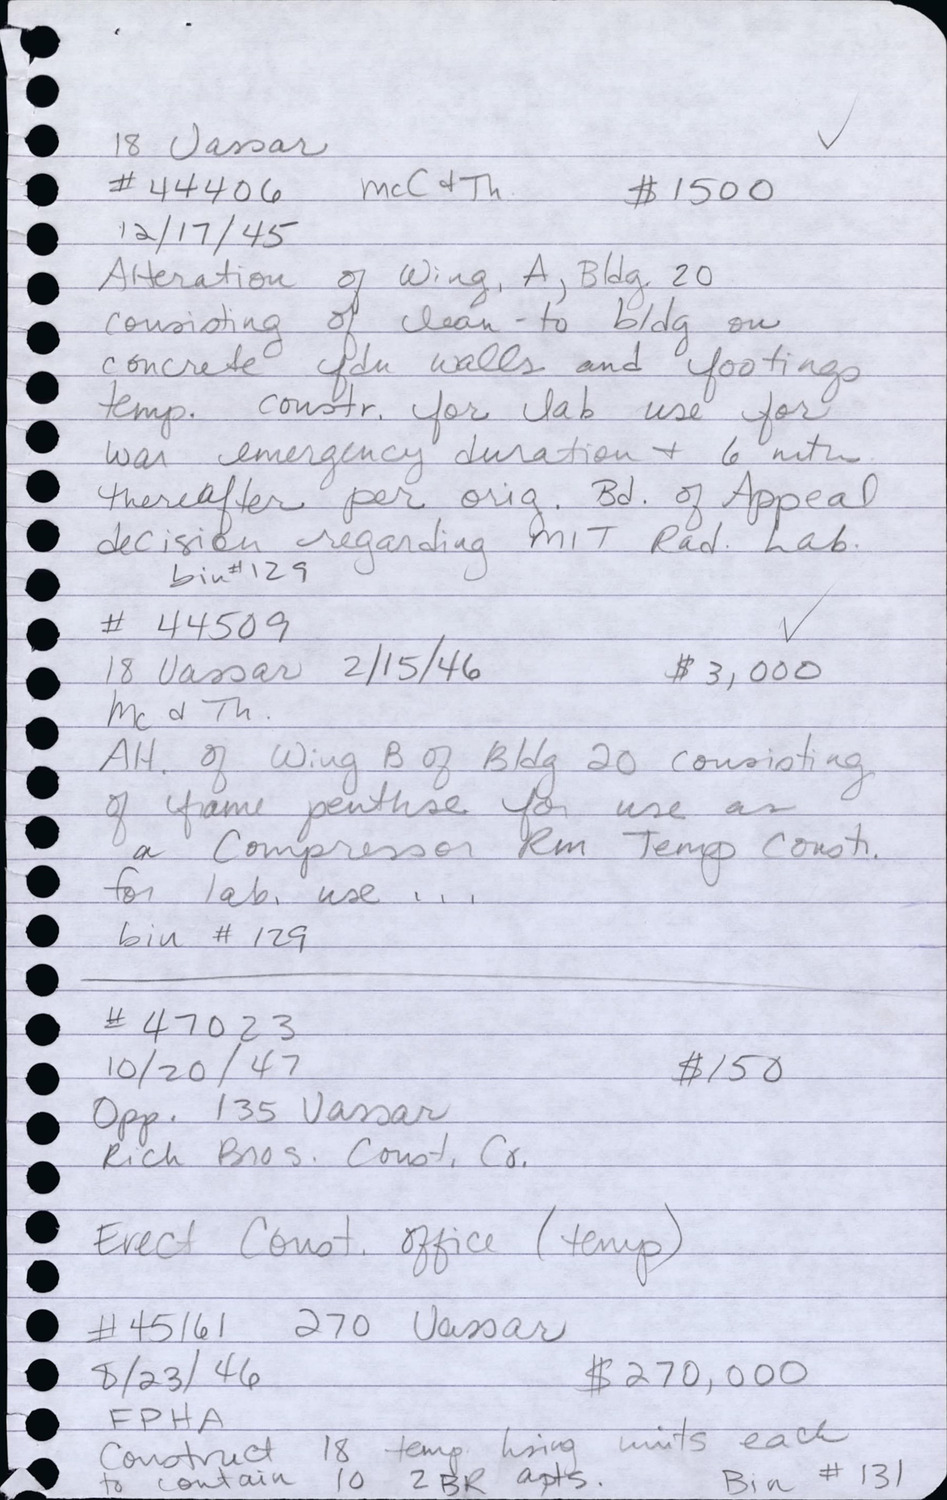 18 Vassar
#44406 McC & Th. $1500
12/17/45
Alteration of Wing, A, Bldg. 20
consisting of lean-to bldg on
concrete fdn walls and footings
temp. constr. for lab use for
war emergency duration + 6 mth
thereafter per orig. Bd. of Appeal
decision regarding MIT Rad. Lab.
bin #129
# 44509
18 Vassar 2/15/46 $3,000
Mc & Th.
Alt. of Wing B of Bldg 20 consisting
of frame penthse for use as
a Compressor Rm Temp Constr.
for lab. use ...
bin # 129
# 47023
10/20/47 $150
Opp. 135 Vassar
Rich Bros. Const. Co.
Erect Const. office (temp)
#45161 270 Vassar
8/23/46 $270,000
FPHA
Construct 18 temp hsing units each
to contain 10 2BR apts. Bin #131